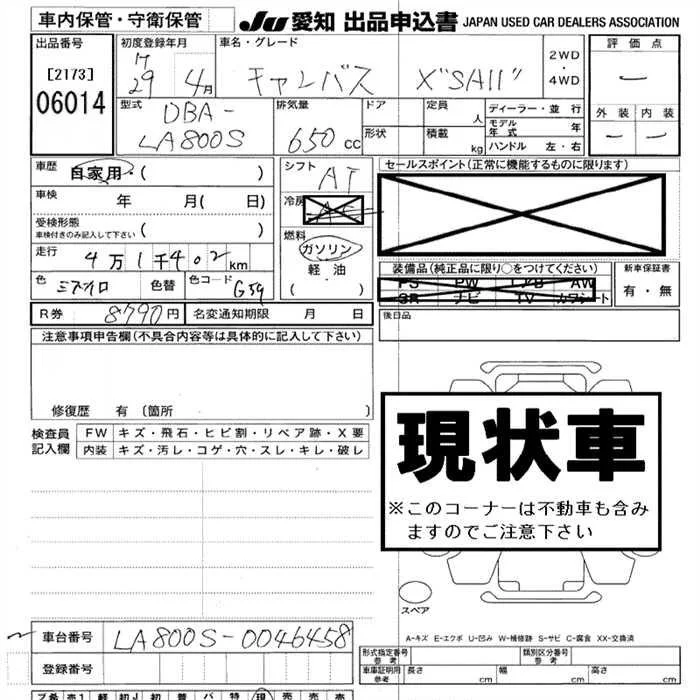 車内保管・守衛保管
Ju 愛知 出品申込書 JAPAN USED CAR DEALERS ASSOCIATION
出品番号
[2173]
06014
初度登録年月
H
29年 4月
車名・グレード
キャンバス X"SAII"
2WD
・
4WD
評価点
—
外装 内装
— —
型式
DBA-
LA800S
排気量
650 cc
ドア
形状
定員
人
積載
kg
ディーラー・並行
モデル
年式
年
ハンドル 左・右
車歴
自家用・( )
車検 年 月( 日)
受検形態
車検付きのみ記入して下さい ( )
走行
4万1千402km
色 色替 色コード G59
シフト
AT
冷房
燃料
ガソリン
軽油
( )
セールスポイント(正常に機能するものに限ります)
装備品(純正品に限り○をつけてください)
PS PW AW
SR ナビ TV カワシート
新車保証書
有・無
後日品
R券 8790円 名変通知期限 月 日
注意事項申告欄(不具合内容等は具体的に記入して下さい)
修復歴 有 (箇所 )
検査員
記入欄
FW キズ・飛石・ヒビ割・リペア跡・X要
内装 キズ・汚レ・コゲ・穴・スレ・キレ・破レ
現状車
※このコーナーは不動車も含み
ますのでご注意下さい
スペア
A-キズ E-エクボ U-凹み W-補修跡 S-サビ C-腐食 XX-交換済
車台番号 LA800S-0046458
登録番号
形式指定番号
参考
類別区分番号
参考
車庫証明用
参考
長さ cm 幅 cm 高さ cm